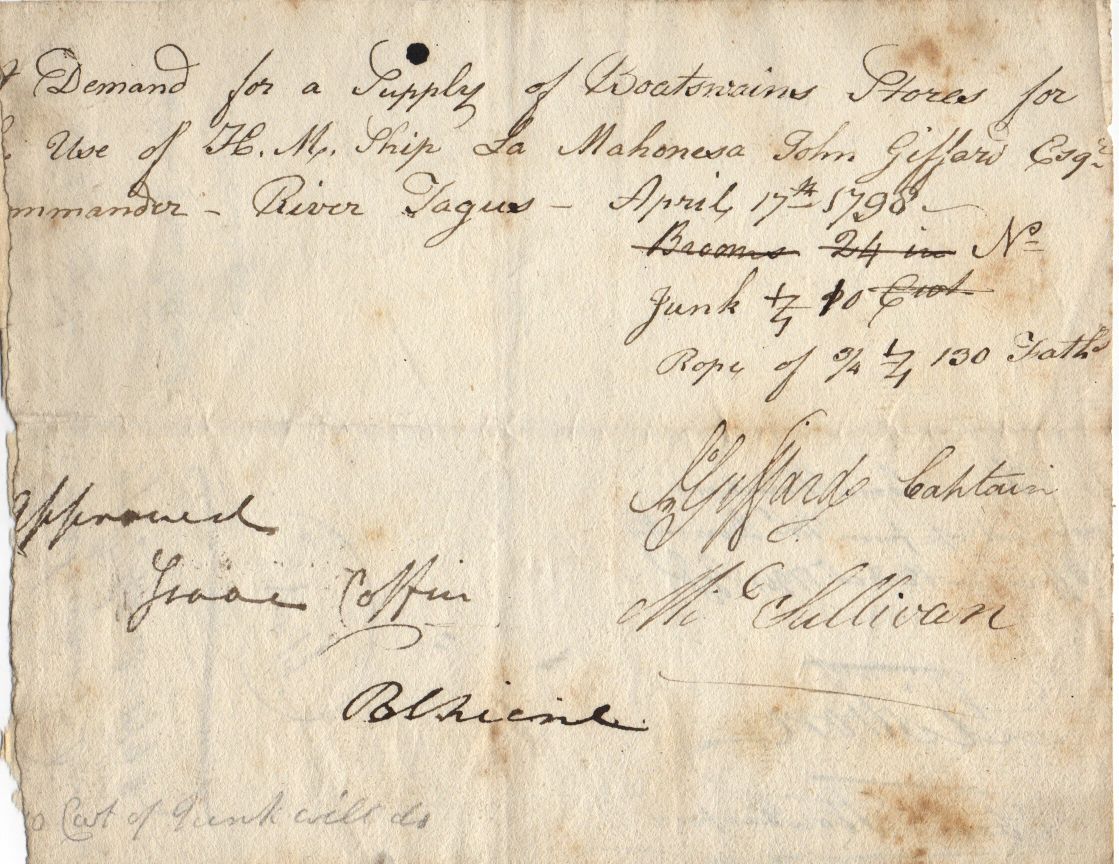 Demand for a Supply of Boatswains Stores for
Use of H. M. Ship La Mahonesa John Giffard Esqr
mmander - River Tagus - April 17th 1798 -
Brooms 24 in No
Junk 10 Cwt
Rope of 3/4 130 Faths
Jno Giffard Captain
approved
Isaac Coffin
Ml Sullivan
Cwt of Junk will do